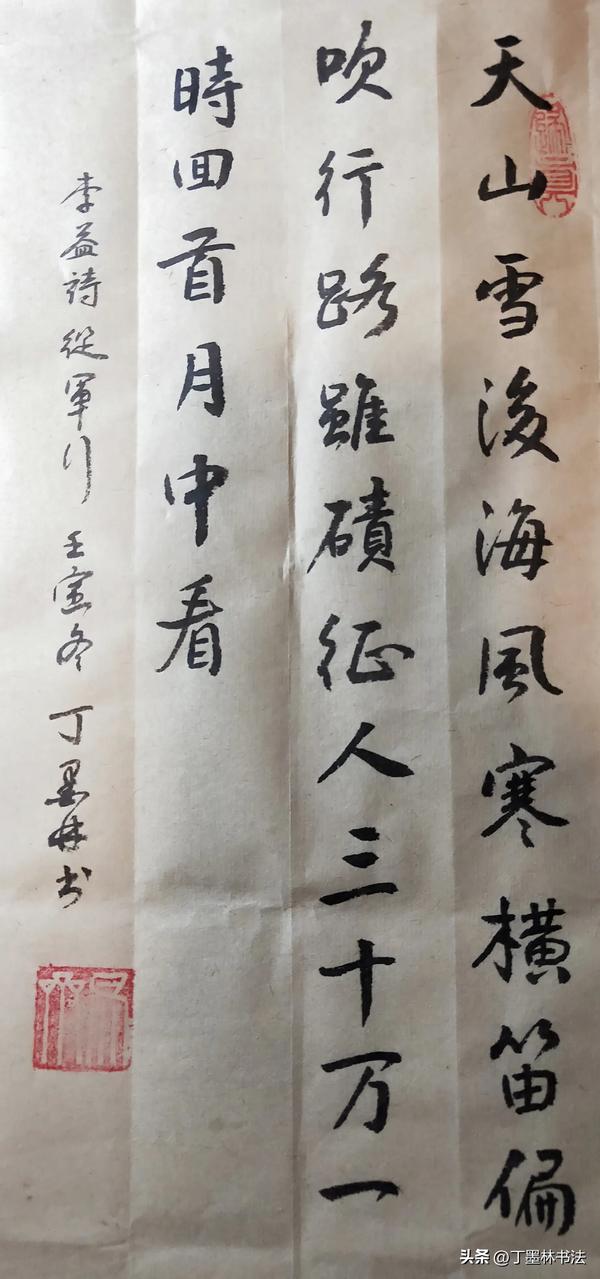 天山雪後海風寒横笛偏
吹行路雖磧征人三十万一
時回首月中看
李益詩從軍行 壬寅冬 丁墨林书
头条 @丁墨林书法